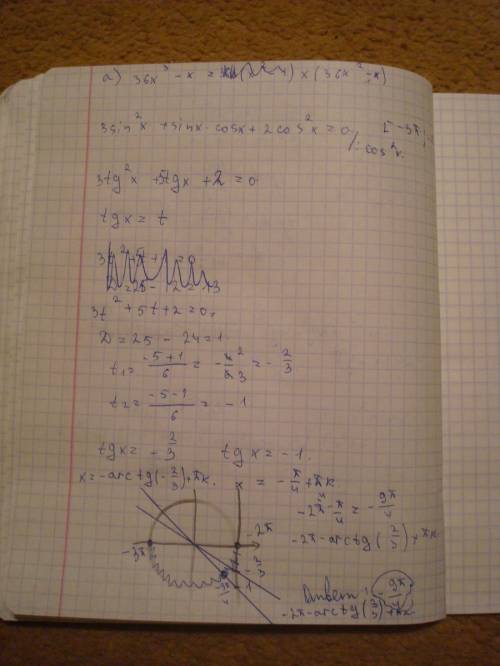 а) 36x³ - x = x(36x² - x)
3sin²x + sinx·cosx + 2cos²x = 0 /: cos²x [-3π;
3tg²x + 5tgx + 2 = 0
tgx = t
3t² + 5t + 2 = 0
D = 25 - 24 = 1
t₁ = (-5+1)/6 = -4/6 = -2/3
t₂ = (-5-1)/6 = -1
tgx = -2/3 tgx = -1
x = -arctg(-2/3) + πk. x = -π/4 + πk
-2π - π/4 = -9π/4
-2π - arctg(2/3) + πk
-3π -2π
Ответ: -9π/4
-2π - arctg(2/3) + πk